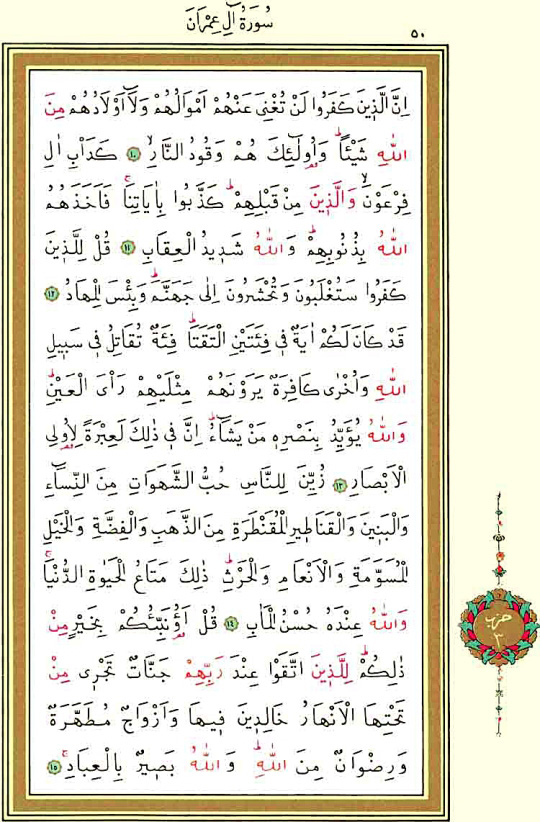 سُورَةُ اٰلِ عِمْرَانَ
٥٠
اِنَّ الَّذ۪ينَ كَفَرُوا لَنْ تُغْنِيَ عَنْهُمْ اَمْوَالُهُمْ وَلَٓا اَوْلَادُهُمْ مِنَ
اللّٰهِ شَيْـًٔاۜ وَاُو۬لٰٓئِكَ هُمْ وَقُودُ النَّارِۙ ﴿١٠﴾ كَدَأْبِ اٰلِ
فِرْعَوْنَۙ وَالَّذ۪ينَ مِنْ قَبْلِهِمْۜ كَذَّبُوا بِاٰيَاتِنَاۚ فَاَخَذَهُمُ
اللّٰهُ بِذُنُوبِهِمْۜ وَاللّٰهُ شَد۪يدُ الْعِقَابِ ﴿١١﴾ قُلْ لِلَّذ۪ينَ
كَفَرُوا سَتُغْلَبُونَ وَتُحْشَرُونَ اِلٰى جَهَنَّمَۜ وَبِئْسَ الْمِهَادُ ﴿١٢﴾
قَدْ كَانَ لَكُمْ اٰيَةٌ ف۪ي فِئَتَيْنِ الْتَقَتَاۜ فِئَةٌ تُقَاتِلُ ف۪ي سَب۪يلِ
اللّٰهِ وَاُخْرٰى كَافِرَةٌ يَرَوْنَهُمْ مِثْلَيْهِمْ رَأْيَ الْعَيْنِۜ
وَاللّٰهُ يُؤَيِّدُ بِنَصْرِه۪ مَنْ يَشَٓاءُۜ اِنَّ ف۪ي ذٰلِكَ لَعِبْرَةً لِاُو۬لِي
الْاَبْصَارِ ﴿١٣﴾ زُيِّنَ لِلنَّاسِ حُبُّ الشَّهَوَاتِ مِنَ النِّسَٓاءِ
وَالْبَن۪ينَ وَالْقَنَاط۪يرِ الْمُقَنْطَرَةِ مِنَ الذَّهَبِ وَالْفِضَّةِ وَالْخَيْلِ
الْمُسَوَّمَةِ وَالْاَنْعَامِ وَالْحَرْثِۜ ذٰلِكَ مَتَاعُ الْحَيٰوةِ الدُّنْيَاۚ
وَاللّٰهُ عِنْدَهُ حُسْنُ الْمَاٰبِ ﴿١٤﴾ قُلْ اَؤُ۬نَبِّئُكُمْ بِخَيْرٍ مِنْ
ذٰلِكُمْۜ لِلَّذ۪ينَ اتَّقَوْا عِنْدَ رَبِّهِمْ جَنَّاتٌ تَجْر۪ي مِنْ
تَحْتِهَا الْاَنْهَارُ خَالِد۪ينَ ف۪يهَا وَاَزْوَاجٌ مُطَهَّرَةٌ
وَرِضْوَانٌ مِنَ اللّٰهِۜ وَاللّٰهُ بَص۪يرٌ بِالْعِبَادِۚ ﴿١٥﴾
حزب
٣